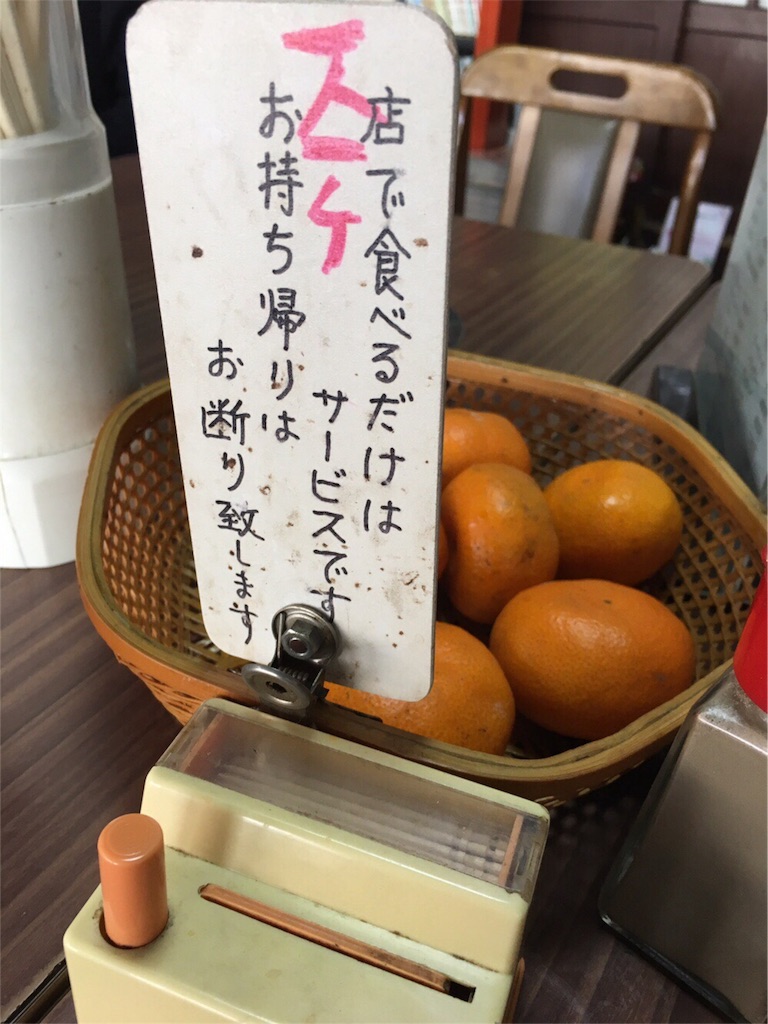 店で食べるだけは
サービスです
お持ち帰りは
お断り致します